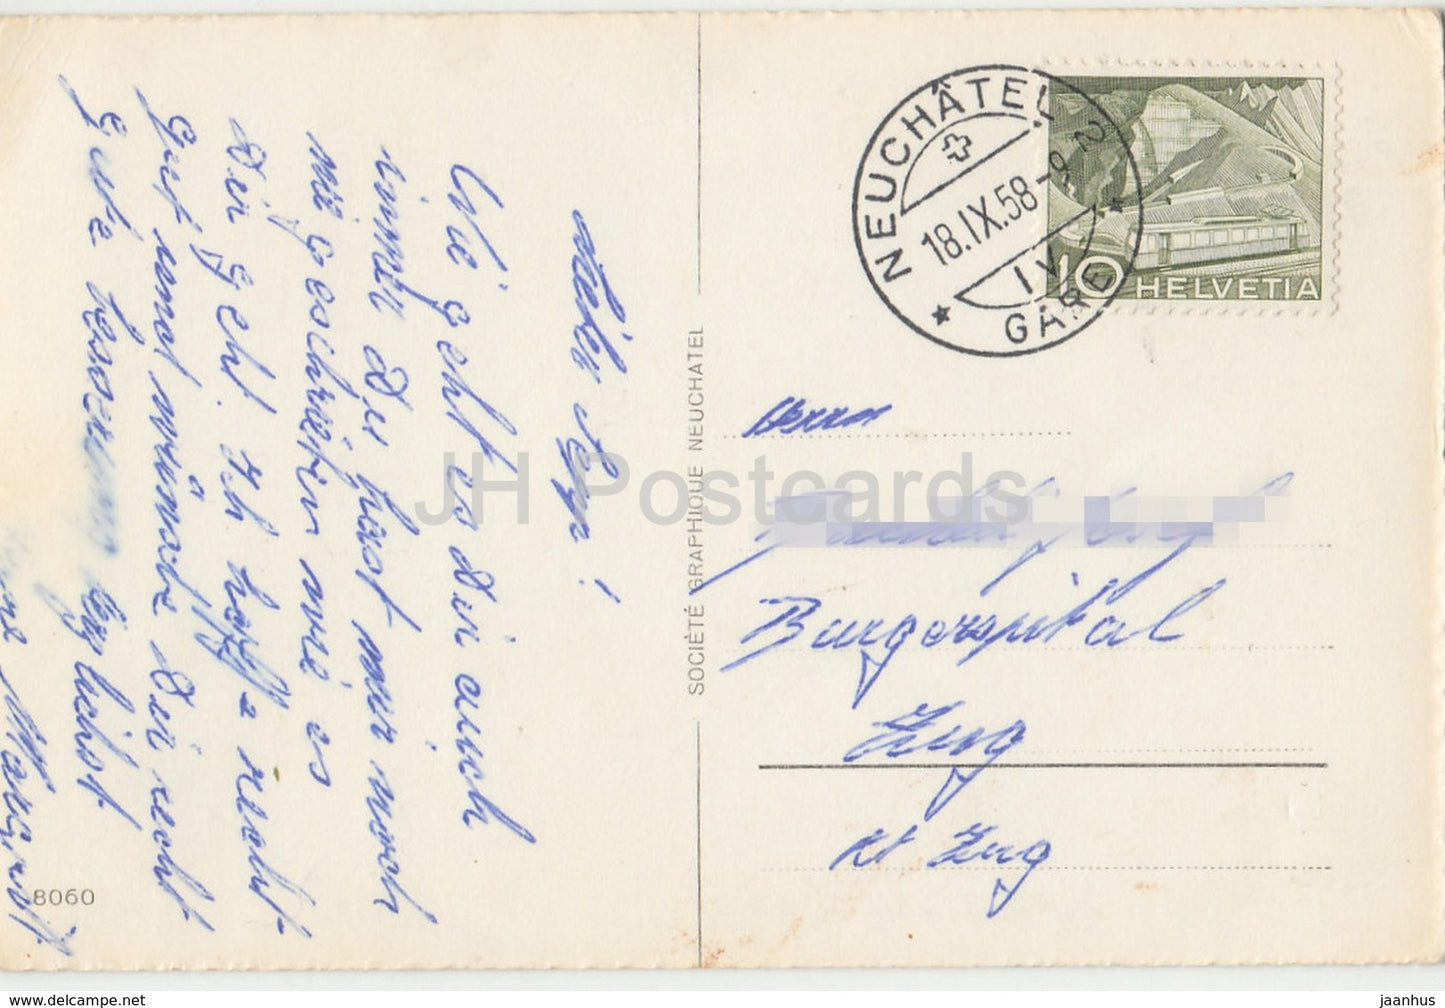 Wie geht es Dir auch
immer du hast mir noch
nie geschrieben wie es
Dir geht. Ich hoffe recht
gut und wünsche Dir recht
gute besserung
Margrit
8060
SOCIÉTÉ GRAPHIQUE NEUCHATEL
NEUCHÂTEL 2
18.IX.58-9
IV
GARE
10 HELVETIA
Herrn
Burgerspital
Zug
Kt Zug
JH Postcards
www.delcampe.net
jaanhus